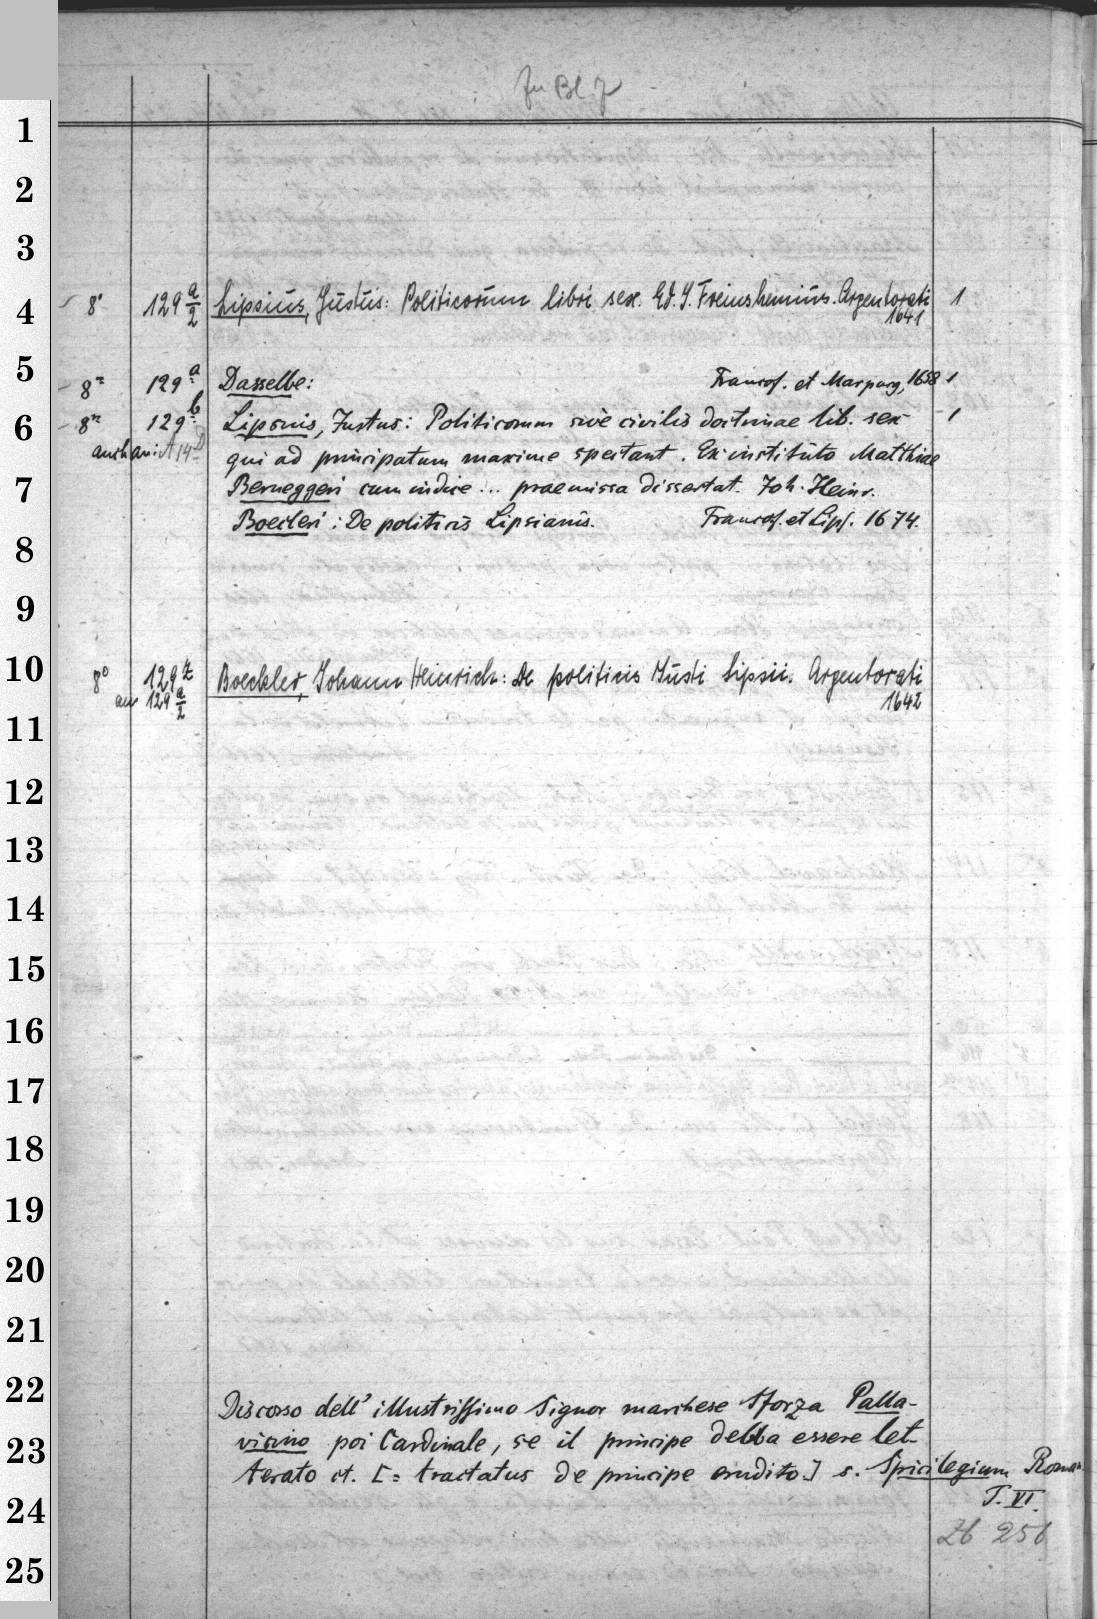 Zu Bl. 7
1
2
3
4 8° 129 a/2 Lipsius, Justus: Politicorum libri sex. Ed. J. Freinshemius. Argentorati 1
1641
5 8° 129 a Dasselbe: Francof. et Marpurg, 1658 1
6 8° 129 b Lipsius, Justus: Politicorum sive civilis doctrinae lib. sex 1
auch an: A 14 qui ad principatum maxime spectant. Ex instituto Matthiae
7 Berneggeri cum indice ... praemissa dissertat. Joh. Heinr.
8 Boecleri: De politicis Lipsianis. Francof. et Lips. 1674.
9
10 8° 129 z Boeckler, Johann Heinrich: De politicis Justi Lipsii. Argentorati
an 129 a/2 1642
11
12
13
14
15
16
17
18
19
20
21
22 Discorso dell' illustrissimo Signor marchese Sforza Palla-
23 vicino poi Cardinale, se il principe debba essere let-
terato ct. [= tractatus de principe erudito.] s. Spicilegium Roman.
24 T. VI.
Zb 256
25